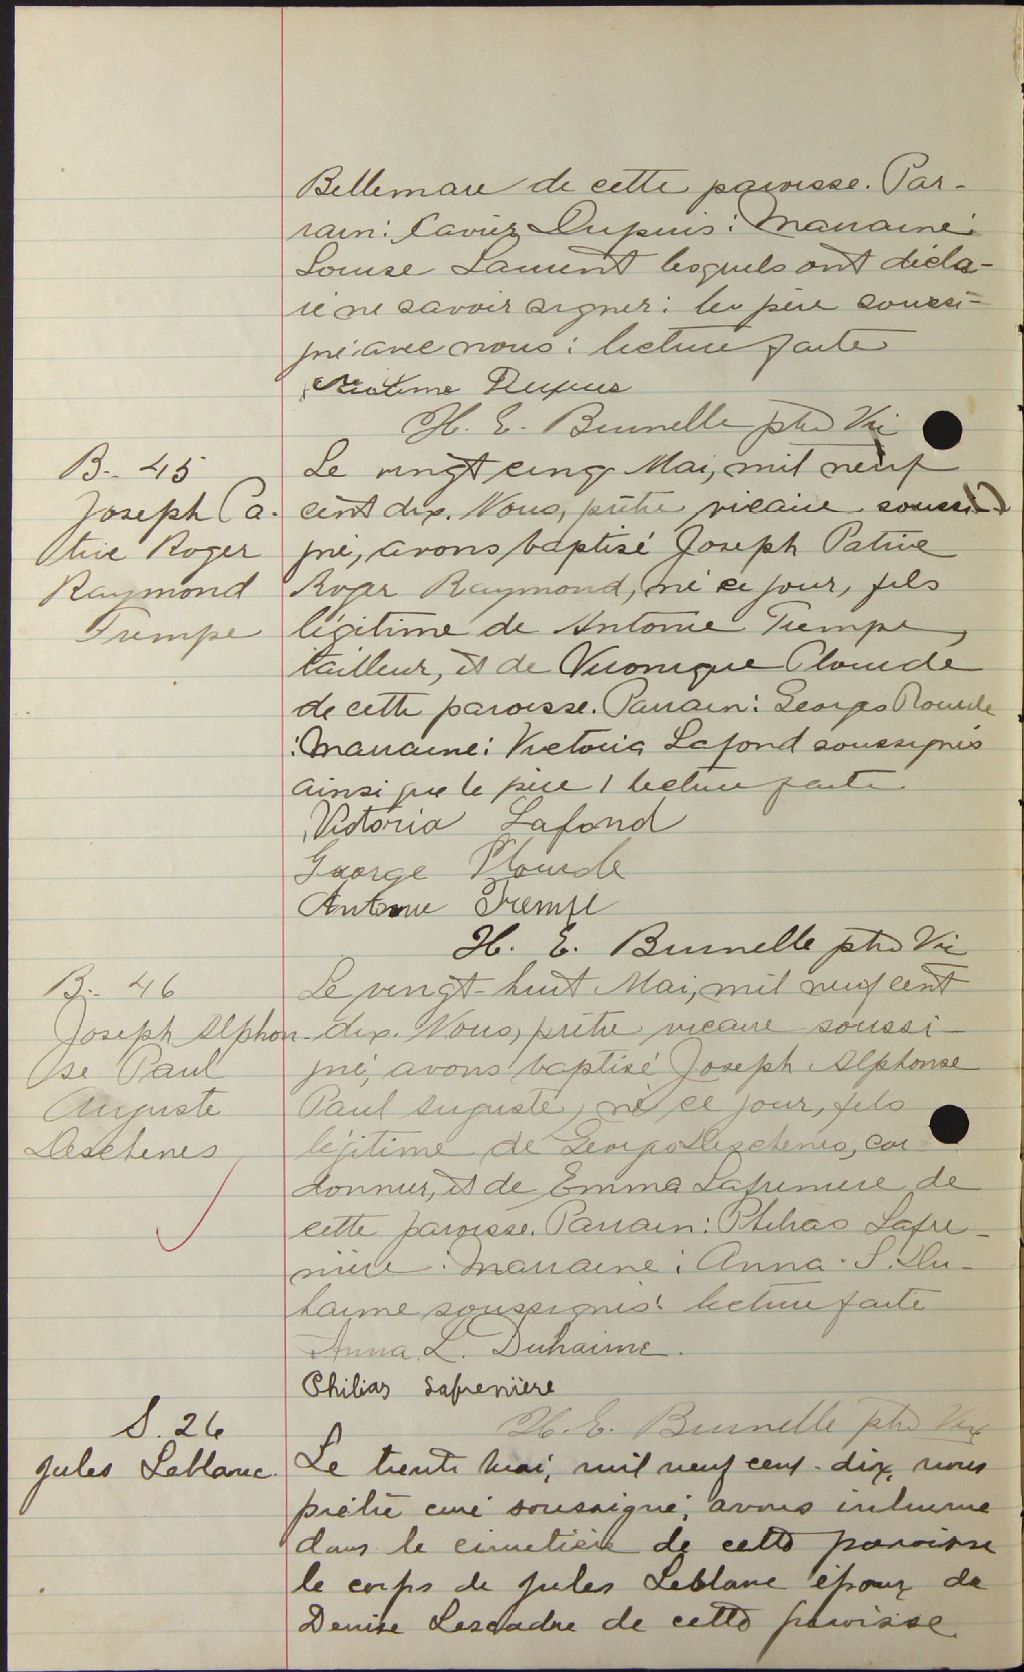 Bellemare de cette paroisse. Par-
rain: Xavier Dupuis: Marraine:
Louise Laurent lesquels ont décla-
ré ne savoir signer: le père soussi-
gné avec nous: lecture faite
Dupuis
H. E. Brunelle ptre Vic
B.- 45
Joseph Pa-
trice Roger
Raymond
Trempe
Le vingt cinq Mai, mil neuf
cent dix. Nous, prêtre vicaire soussi-
gné, avons baptisé Joseph Patrice
Roger Raymond, né ce jour, fils
légitime de Antonie Trempe,
tailleur, et de Véronique Plourde
de cette paroisse. Parrain: Georges Plourde
: Marraine: Victoria Lafond soussignés
ainsi que le père! lecture faite.
Victoria Lafond
George Plourde
Antonie Trempe
H. E. Brunelle ptre Vic
B.- 46
Joseph Alphon-
se Paul
Auguste
Deschenes
Le vingt-huit Mai, mil neuf cent
dix. Nous, prêtre vicaire soussi-
gné, avons baptisé Joseph Alphonse
Paul Auguste, né ce jour, fils
légitime de Georges Deschenes, cor
donnier, et de Emma Lafreniere de
cette paroisse. Parrain: Philias Lafre-
nière: Marraine: Anna. L. Du-
haime soussignés: lecture faite
Anna. L. Duhaime.
Philias Lafrenière
H. E. Brunelle ptre Vic
S. 26
Jules Leblanc.
Le trente Mai, mil neuf cent-dix, nous
prêtre curé soussigné, avons inhumé
dans le cimetière de cette paroisse
le corps de Jules Leblanc époux de
Denise Lescadre de cette paroisse